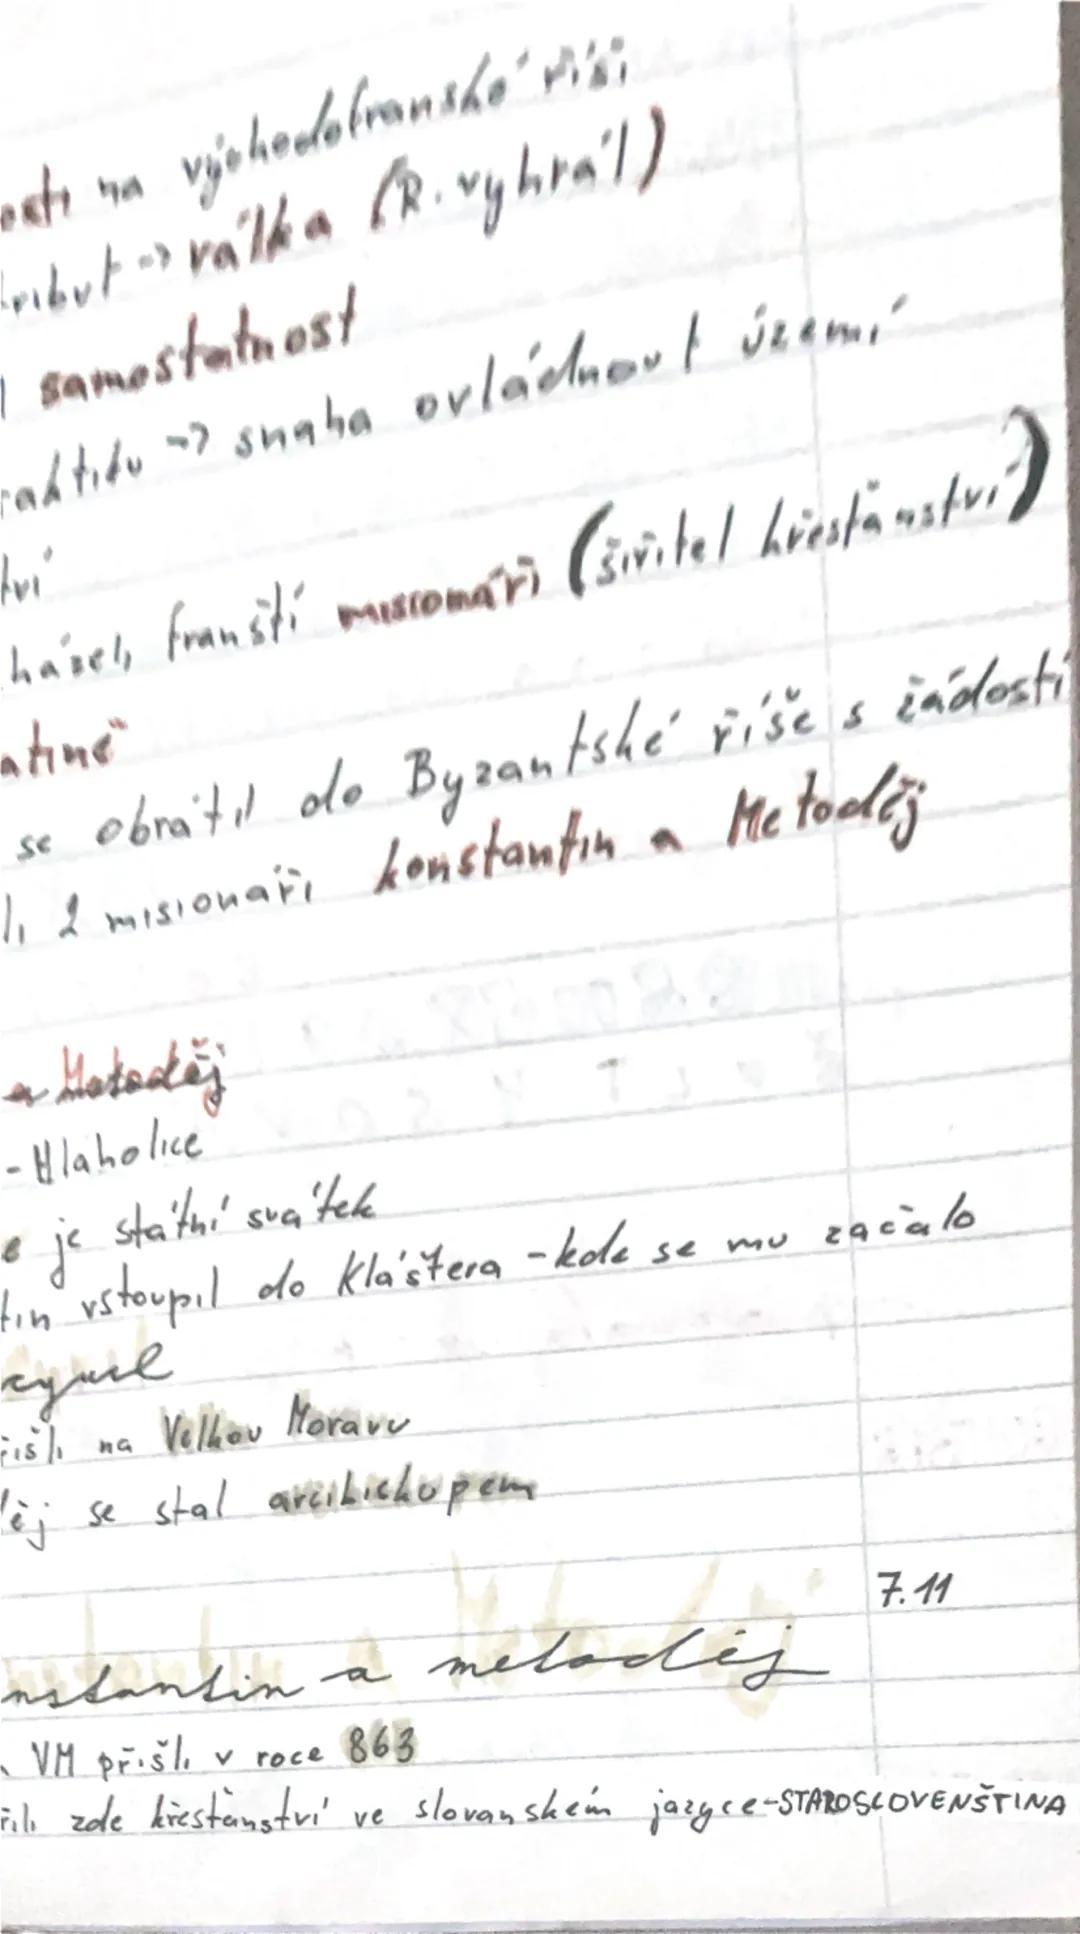 osti na východofranské říši
tribut -> válka (R. vyhrál)
samostatnost
raktiku -> snaha ovládnout území
tví
házeli franští missionáři (šiřitel křesťanství)
atině
se obrátil do Byzantské říše s žádostí
li 2 misionáři konstantin a Metoděj
a Metoděj
- Hlaholice
e je státní svátek
tin vstoupil do kláštera - kde se mu začalo
cyril
řišli na Velkou Moravu
ěj se stal arcibiskupem
7.11
nstantin a metoděj
VM přišli v roce 863
řili zde křesťanství ve slovanském jazyce - STAROSLOVENŠTINA